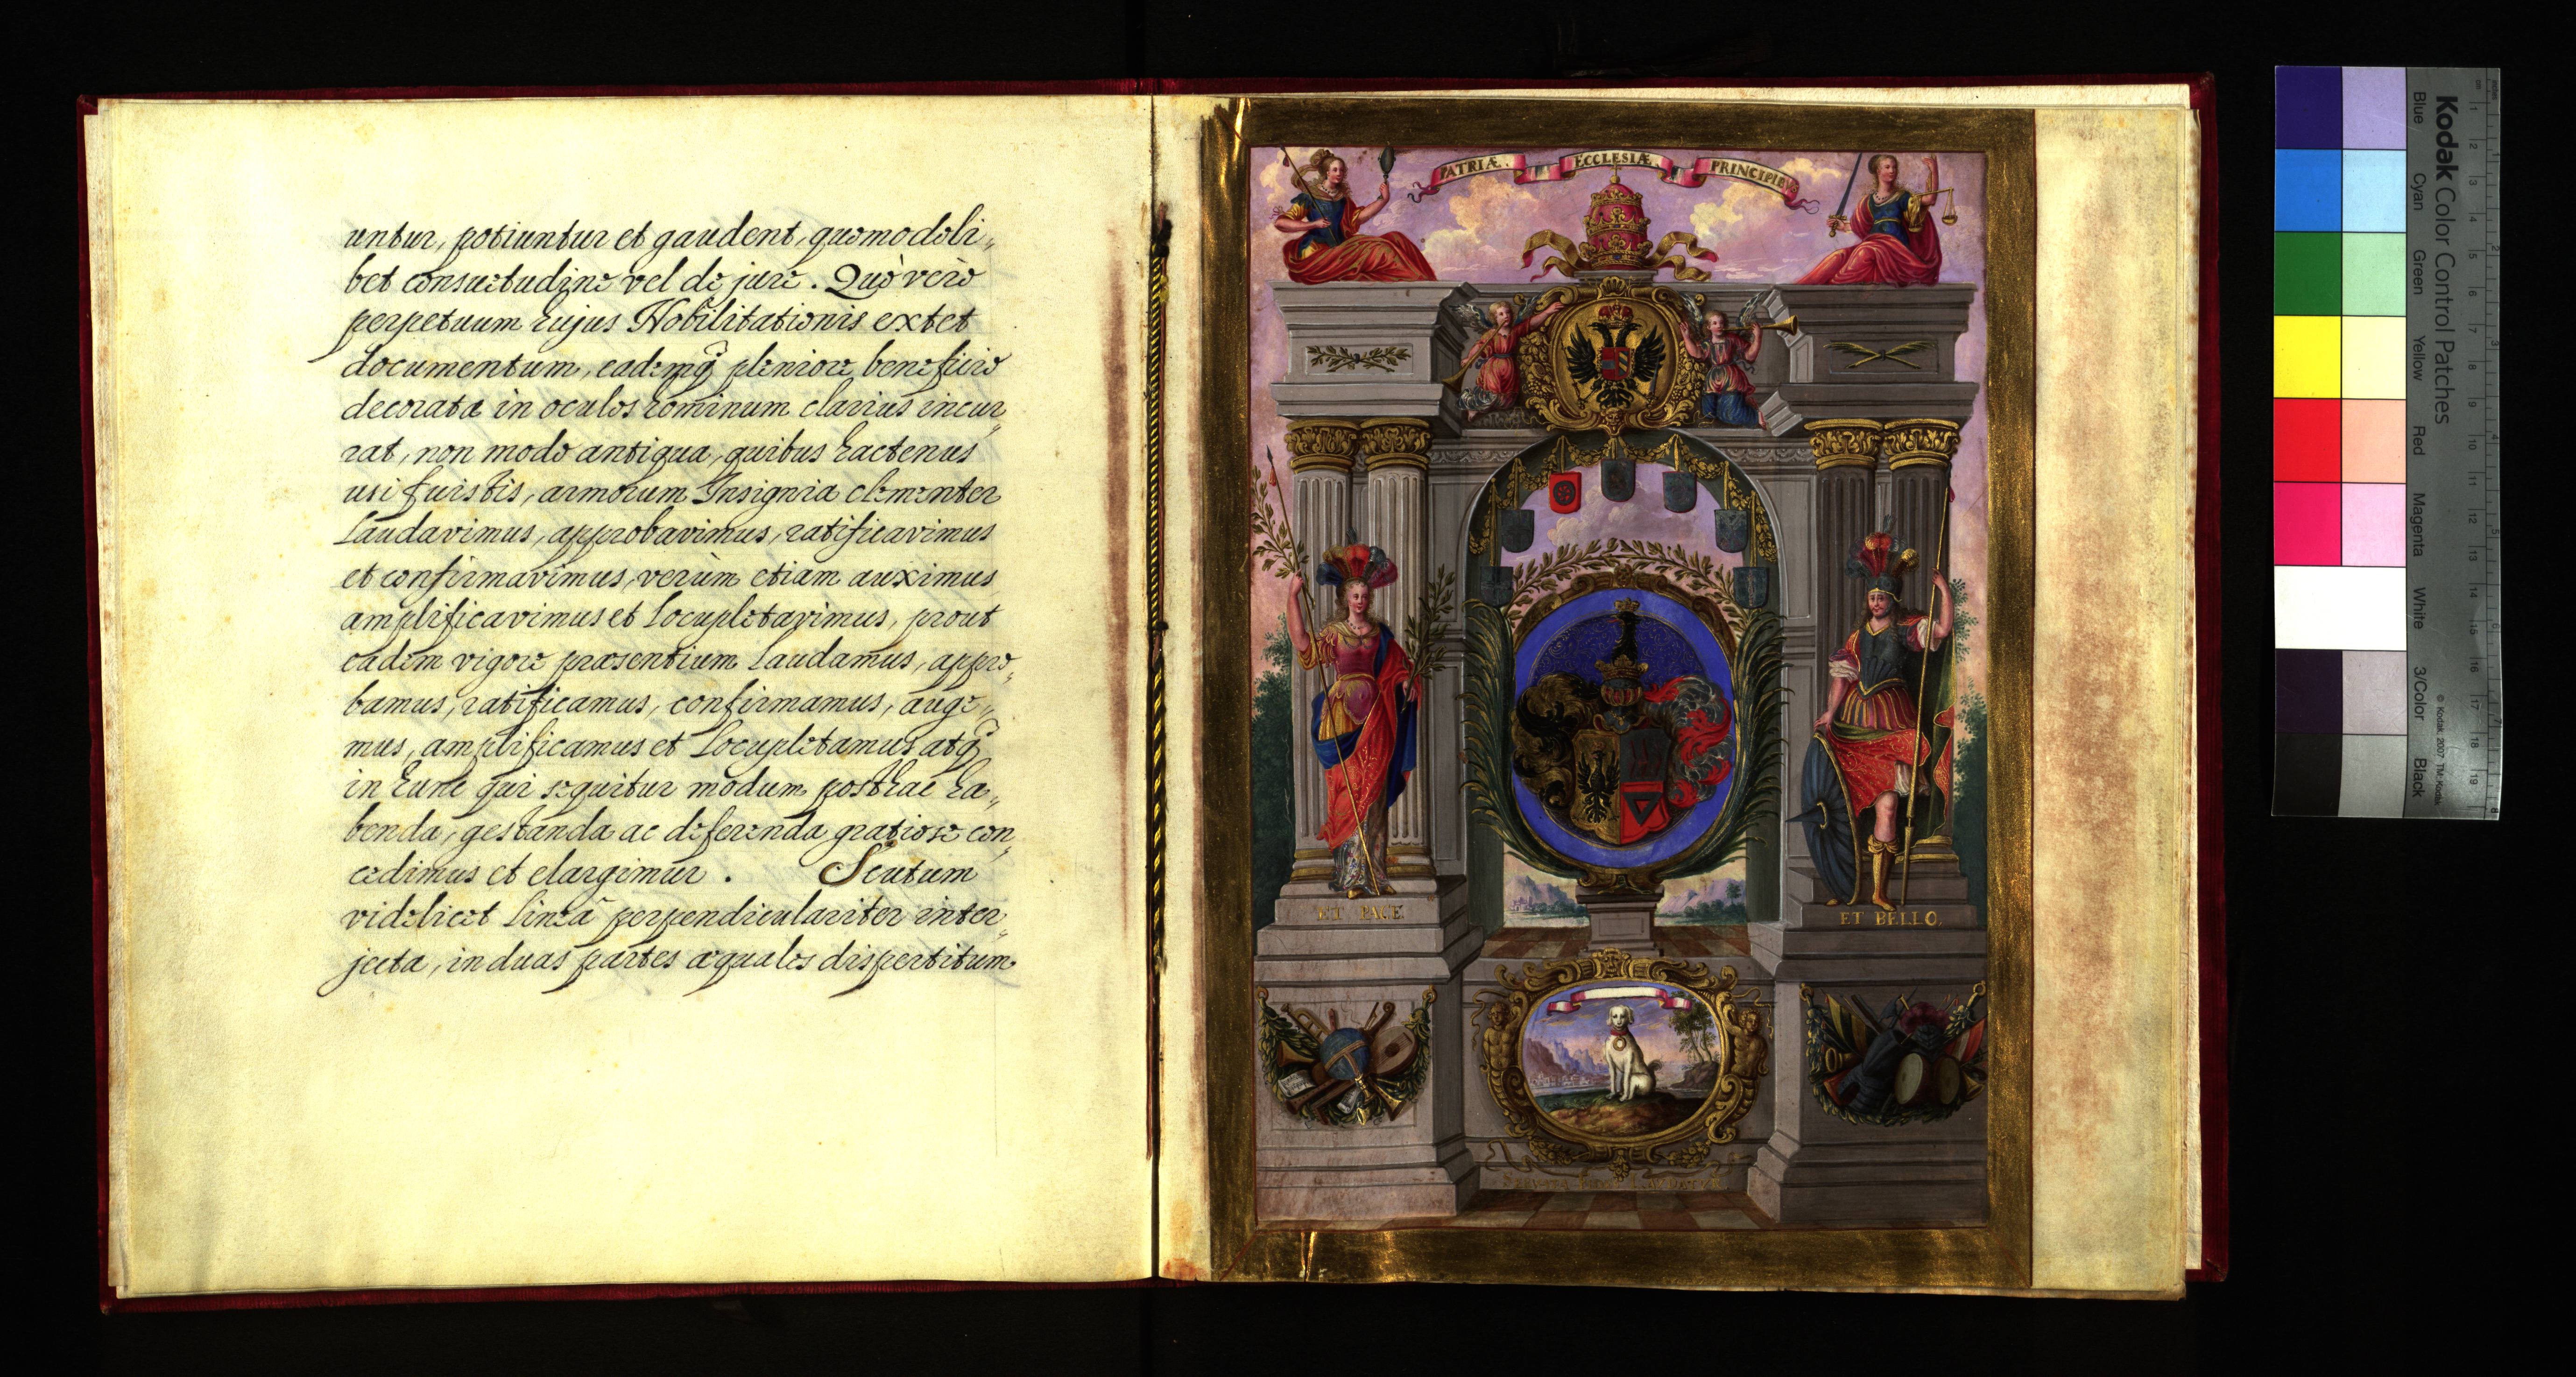 untur, potiuntur et gaudent, quomodoli„
bet consuetudine vel de jure. Quò verò
perpetuum hujus Nobilitationis extet
documentum, eademq̃ pleniore beneficio
decorata in oculos hominum clarius incur„
rat, non modo antiqua, quibus hactenus
usi fuistis, armorum Insignia clementer
laudavimus, approbavimus, ratificavimus
et confirmavimus, verùm etiam auximus
amplificavimus et locupletavimus, prout
eadem vigore præsentium laudamus, appro„
bamus, ratificamus, confirmamus, auge„
mus, amplificamus et locupletamus atq̃
in hunc qui sequitur modum posthac ha„
benda, gestanda ac deferenda gratiose con„
cedimus et elargimur. Scutum
videlicet lineâ perpendiculariter inter„
jecta, in duas partes æquales dispertitum
PATRIÆ. ECCLESIÆ. PRINCIPIBUS
ET PACE
ET BELLO.
Kodak Color Control Patches
Blue Cyan Green Yellow Red Magenta White 3/Color Black
© Kodak, 2007 TM: Kodak
cm 1 2 3 4 5 6 7 8 9 10 11 12 13 14 15 16 17 18 19
inches 1 2 3 4 5 6 7 8